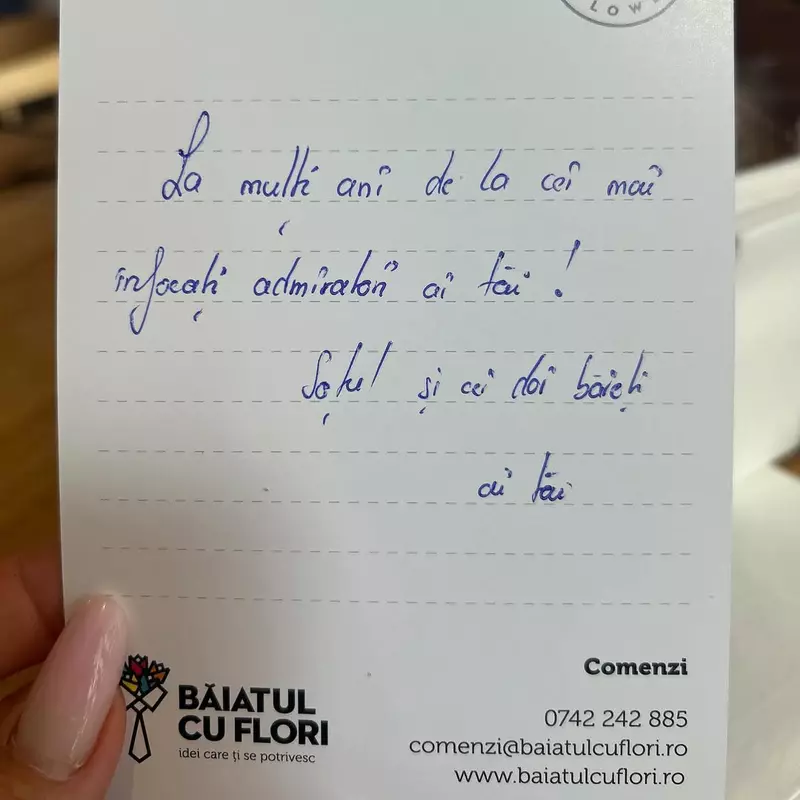 LOW
La mulți ani de la cei mai
înfocați admiratori ai tăi!
Soțul și cei doi băieți
ai tăi
BĂIATUL
CU FLORI
idei care ți se potrivesc
Comenzi
0742 242 885
comenzi@baiatulcuflori.ro
www.baiatulcuflori.ro